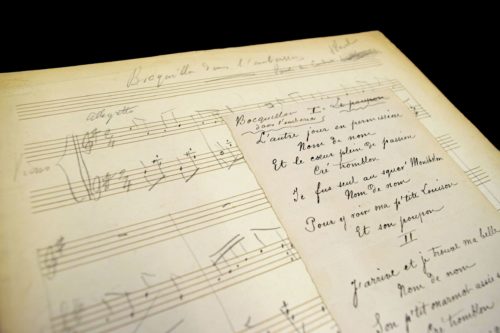 Bocquillon dans l'embarras
Allegretto
Bocquillon I - Le poupon
dans l'embarras
L'autre jour en permission
Nom de nom
Et le cœur plein de passion
Cré tromblon
Je fus seul au squar' Montholon
Nom de nom
Pour y voir ma p'tite Louison
Et son poupon
II
J'arrive et je trouve ma belle
Nom de nom
Son p'tit marmot assis
Cré tromblon